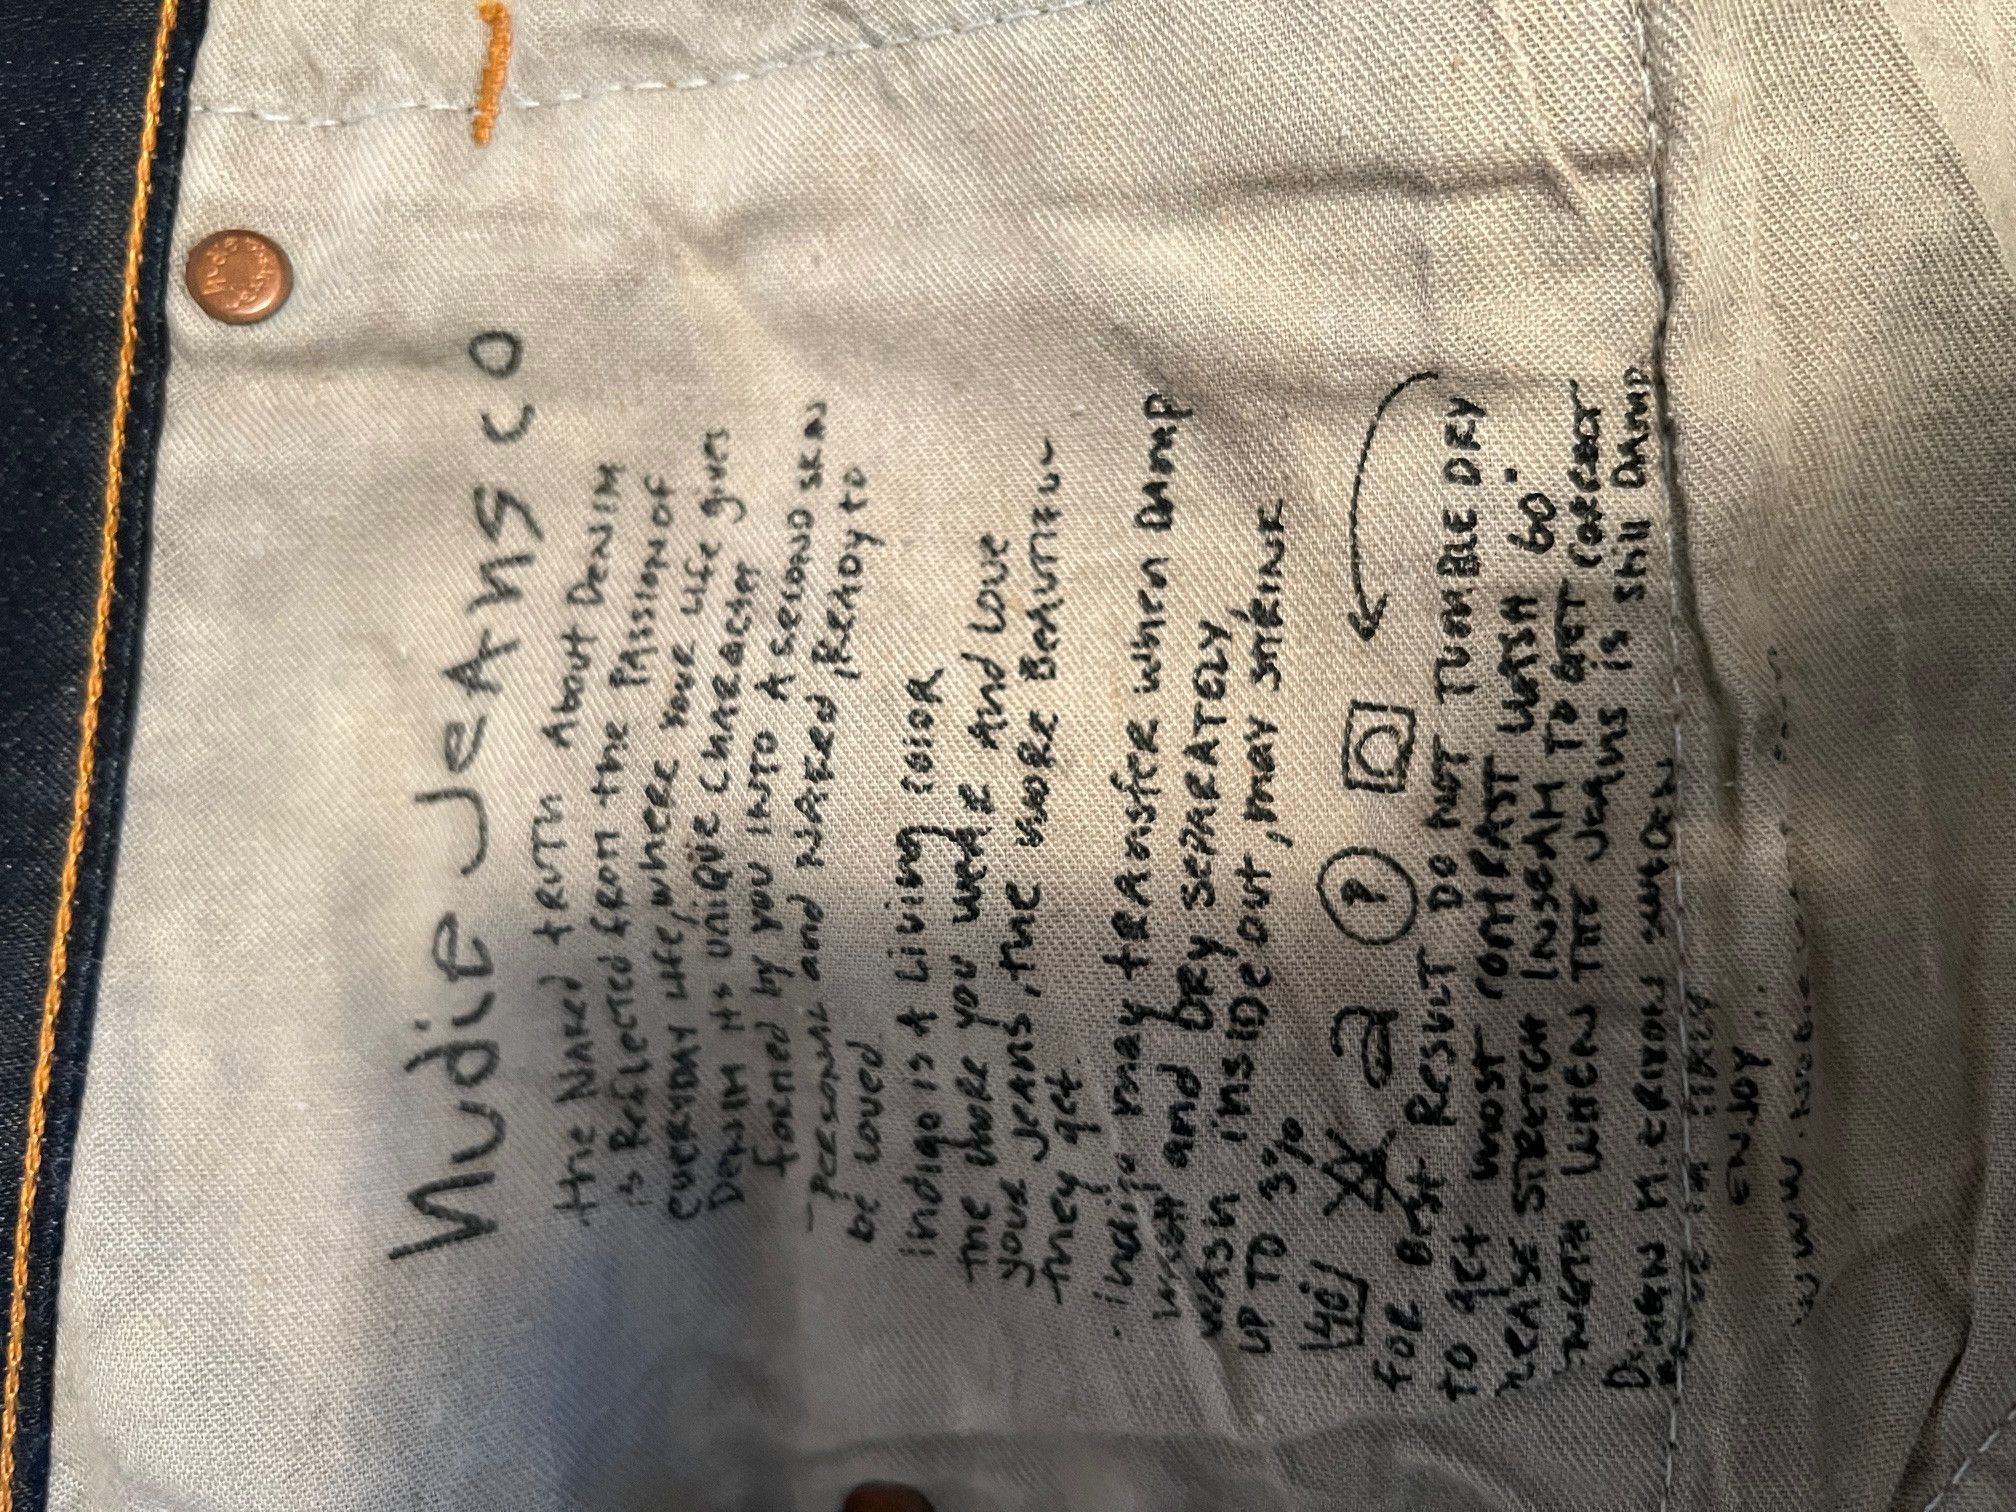 nudie JeAns co
the NAKED tRUTH About DENIM
is Reflected from the PASSION OF
EVERYDAY LIFE, where YOUR LIFE gives
DENIM its UNIQUE CHARACTER
formed by you INTO A SECOND SKIN
- PERSONAL and NAKED, READY to
be LOVED
indigo is A Living COLOR
THE MORE YOU WEAR And LOVE
YOUR JEANS, THE MORE BEAUTIFUL
they get.
indigo may tRANSfer when DAMP
WASH and DRY SEPARATELY
WASH insIDe out, may SHRINK
UP TO 3%
40 P
FOR Best ResuLT DO NOT TUMBLE DRY
TO get most CONTRAST WASH 60°
STRETCH INSEAM TO GET CORRECT
WHEN THE JeAns is still DAMP
MADE IN ITALY
ENJOY...
Nudie Jeans